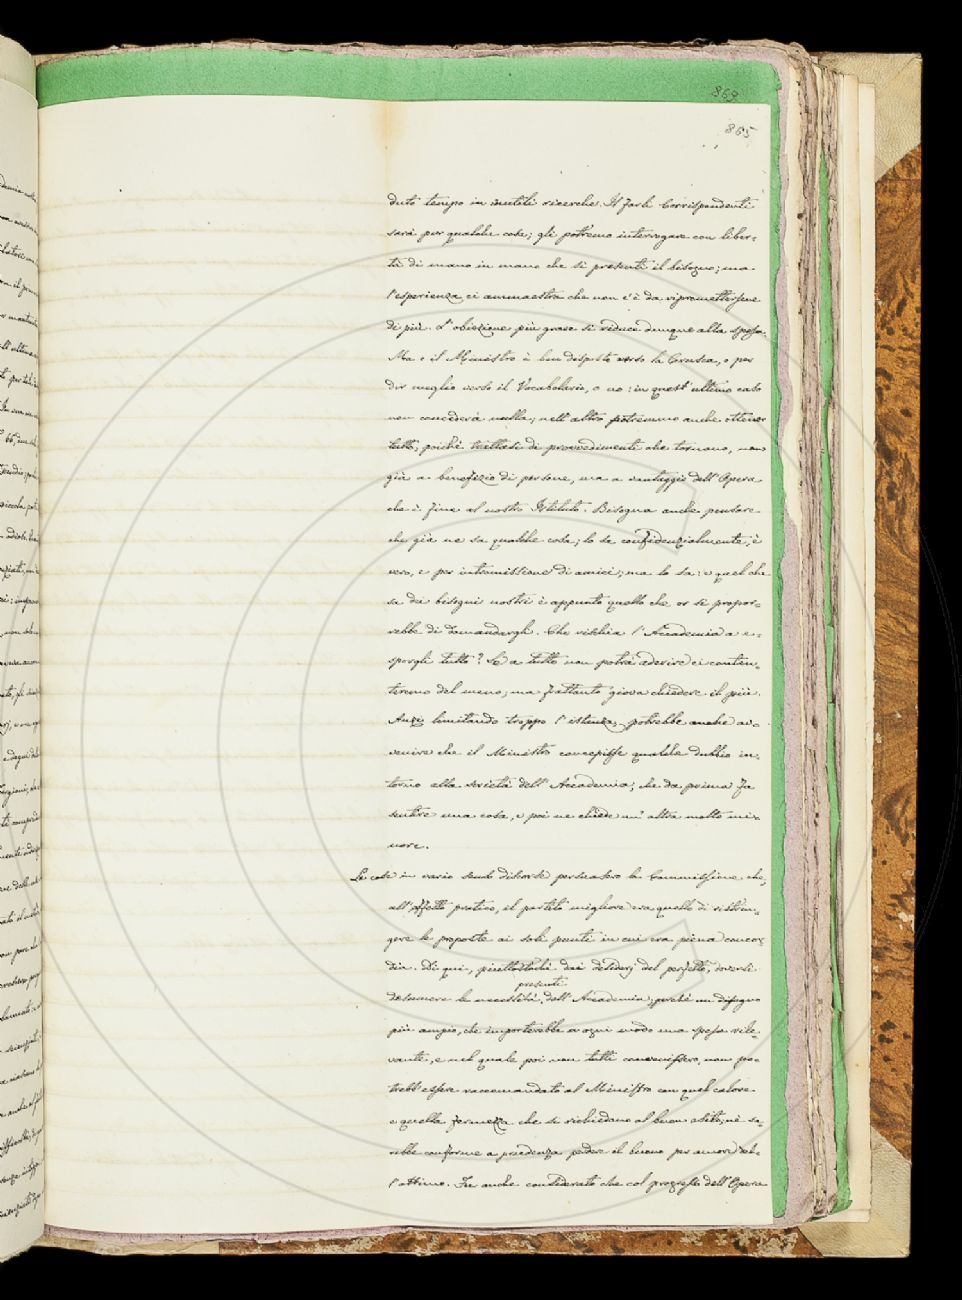 869
865
duto tempo in inutili ricerche. Il farli Corrispondenti
sarà pur qualche cosa; gli potremo interrogare con liber-
tà di mano in mano che si presenti il bisogno; ma
l'esperienza ci ammaestra che non c'è da ripromettersene
di più. L'obiezione più grave si riduce dunque alla spesa.
Ma o il Ministro è ben disposto verso la Crusca, o per
dir meglio verso il Vocabolario, o no: in quest'ultimo caso
non concederà nulla; nell'altro potremmo anche ottener
tutto, poichè trattasi di provvedimenti che tornano, non
già a benefizio di persone, ma a vantaggio dell'Opera
che è fine al nostro Istituto. Bisogna anche pensare
che già ne sa qualche cosa; lo sa confidenzialmente, è
vero, e per intromissione di amici; ma lo sa: e quel che
sa dei bisogni nostri è appunto quello che or si propor-
rebbe di domandargli. Che rischia l'Accademia a e-
sporgli tutto? Se a tutto non potrà aderire ci conten-
teremo del meno; ma frattanto giova chiedere il più.
Anzi limitando troppo l'istanza, potrebbe anche av-
venire che il Ministro concepisse qualche dubbio in-
torno alla serietà dell'Accademia, che da prima fa
sentire una cosa, e poi ne chiede un'altra molto mi-
nore.
Le cose in vario senso discorse persuasero la Commissione che,
all'effetto pratico, il partito migliore era quello di ristrin-
gere le proposte ai soli punti in cui era piena concor
dia. Di qui, piuttostochè dai desiderj del perfetto, doversi
presenti
desumere le necessità dell'Accademia; perchè un disegno
più ampio, che importerebbe a ogni modo una spesa rile-
vante, e nel quale poi non tutti convenissero, non po-
trebb'essere raccomandato al Ministro con quel calore
e quella fermezza che si richiedono al buon esito; nè sa-
rebbe conforme a prudenza perdere il buono per amore del-
l'ottimo. Fu anche considerato che col progresso dell'Opera